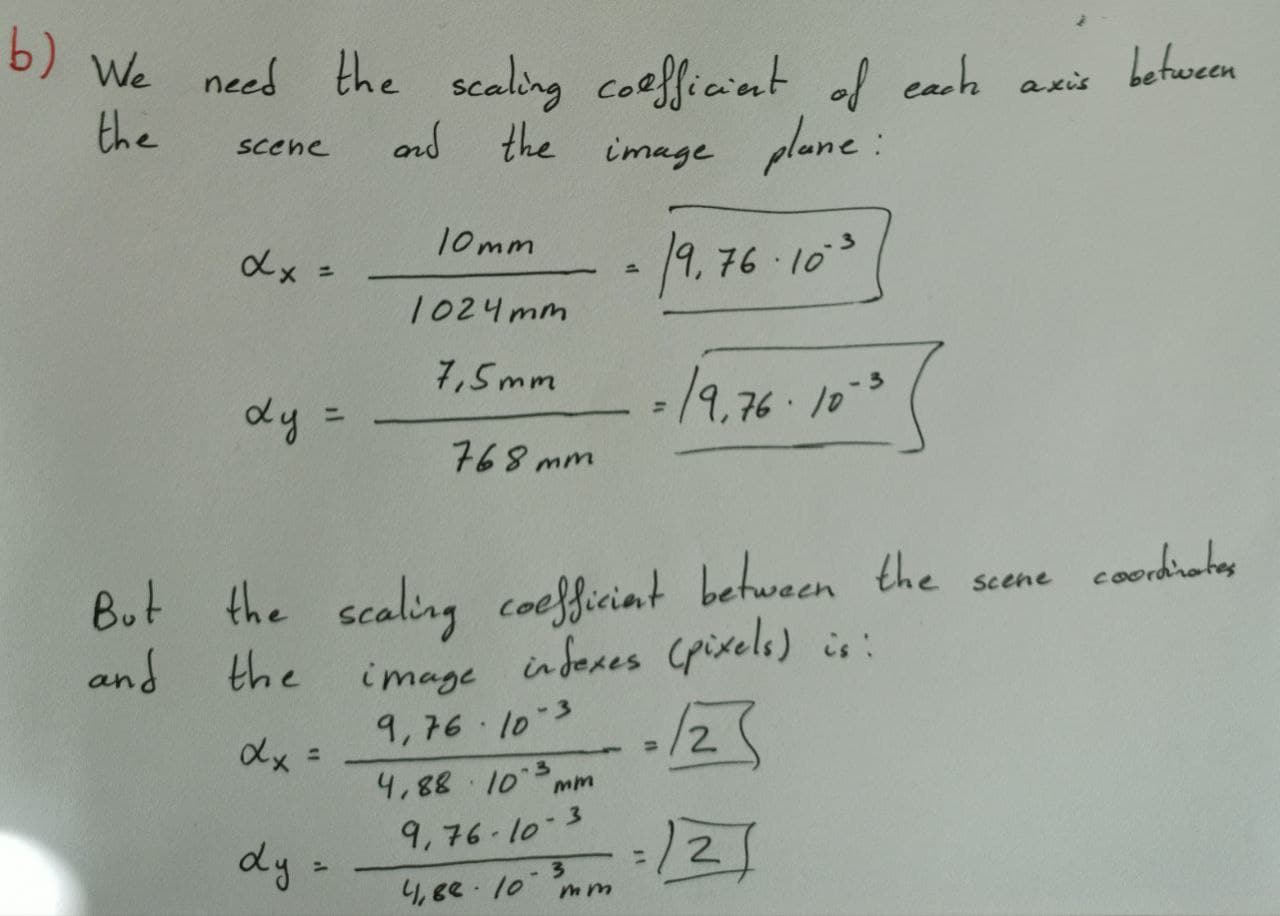 b) We need the scaling coefficient of each axis between
the scene and the image plane:
αx = 10mm / 1024mm = 9,76 · 10^-3
αy = 7,5mm / 768mm = 9,76 · 10^-3
But the scaling coefficient between the scene coordinates
and the image indexes (pixels) is:
αx = 9,76 · 10^-3 / 4,88 · 10^-3 mm = 2
αy = 9,76 · 10^-3 / 4,88 · 10^-3 mm = 2